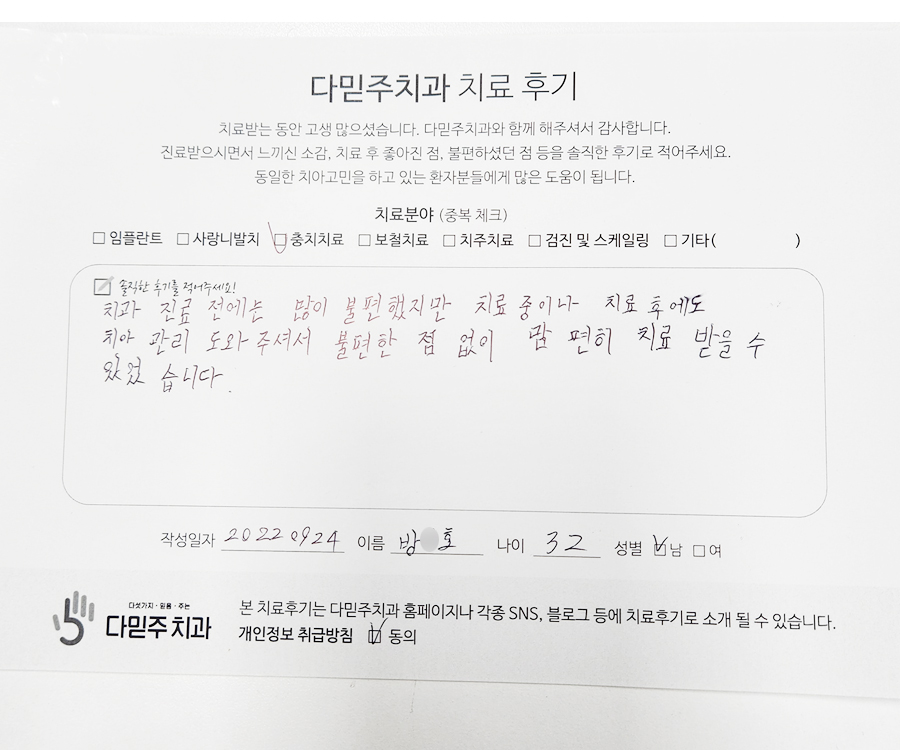 다믿주치과 치료 후기
치료받는 동안 고생 많으셨습니다. 다믿주치과와 함께 해주셔서 감사합니다.
진료받으시면서 느끼신 소감, 치료 후 좋아진 점, 불편하셨던 점 등을 솔직한 후기로 적어주세요.
동일한 치아고민을 하고 있는 환자분들에게 많은 도움이 됩니다.
치료분야 (중복 체크)
☐ 임플란트 ☐ 사랑니발치 ☑ 충치치료 ☐ 보철치료 ☐ 치주치료 ☐ 검진 및 스케일링 ☐ 기타( )
솔직한 후기를 적어주세요!
치과 진료 전에는 많이 불편했지만 치료 중이나 치료 후에도
치아 관리 도와주셔서 불편한 점 없이 맘 편히 치료 받을 수
있었습니다.
작성일자 20220924 이름 방 호 나이 32 성별 ☑남 ☐여
다섯가지·믿음·주는
다믿주치과
본 치료후기는 다믿주치과 홈페이지나 각종 SNS, 블로그 등에 치료후기로 소개 될 수 있습니다.
개인정보 취급방침 ☑ 동의